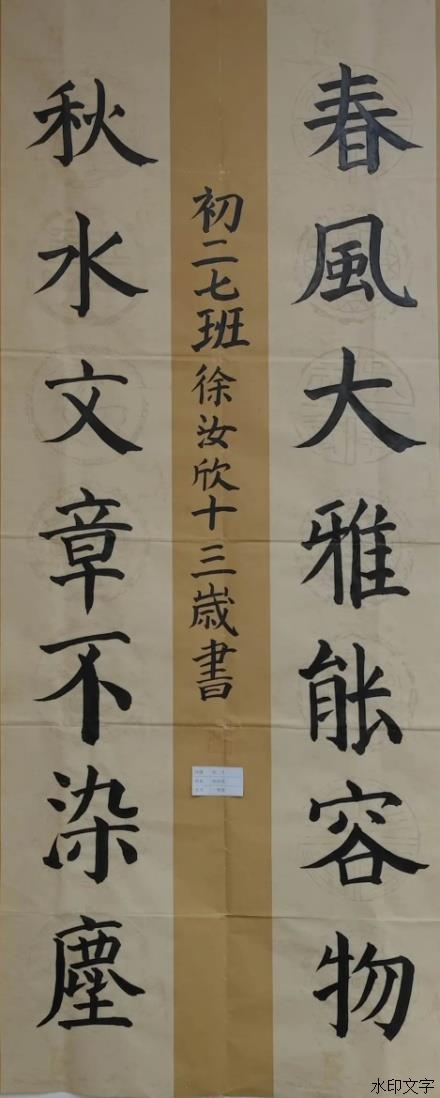 春風大雅能容物
秋水文章不染塵
初二七班徐汝欣十三歲書
水印文字